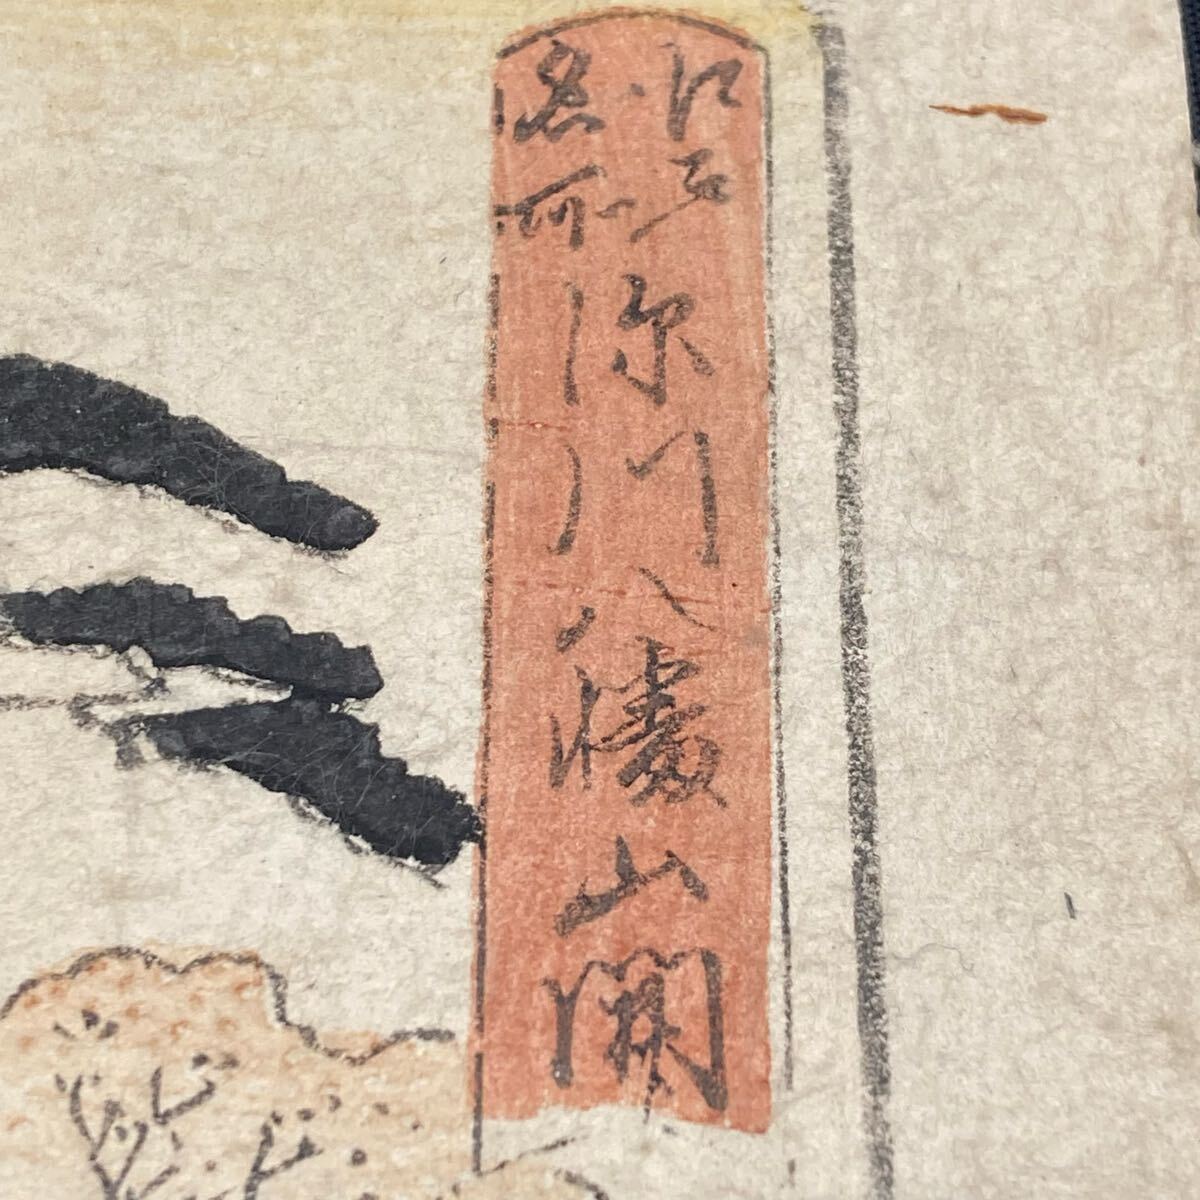 江戸
名所
深川八幡山開